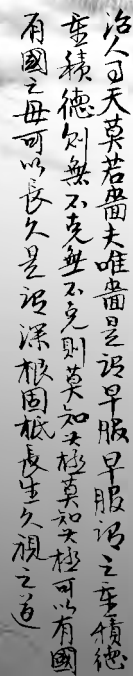 治人事天莫若嗇夫唯嗇是谓早服早服谓之重積德
重積德则無不克無不克则莫知其极莫知其極可以有國
有國之母可以長久是谓深根固柢長生久視之道